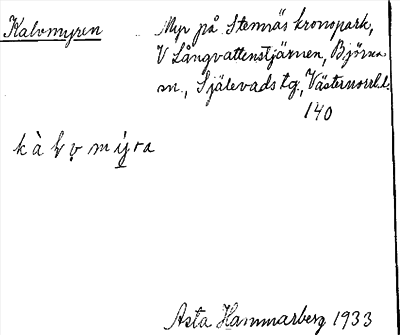 Kalvmyren
Myr på Stennäs kronopark,
V Långvattenstjärnen, Björna
m., Själevads tg., Västernorrl. l.
140
k à l v m y̆ r a
Asta Hammarberg 1933